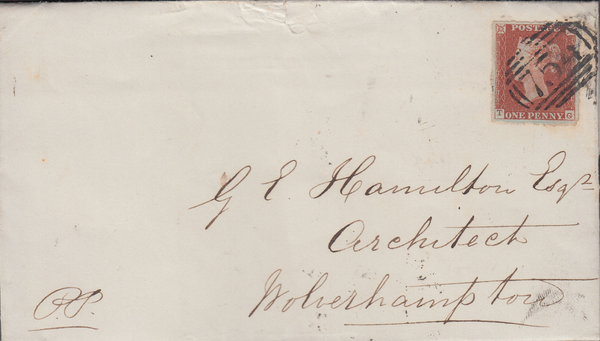 POSTAGE
754
T G
ONE PENNY
G E Hamilton Esqr
Architect
Wolverhampton
P.P.